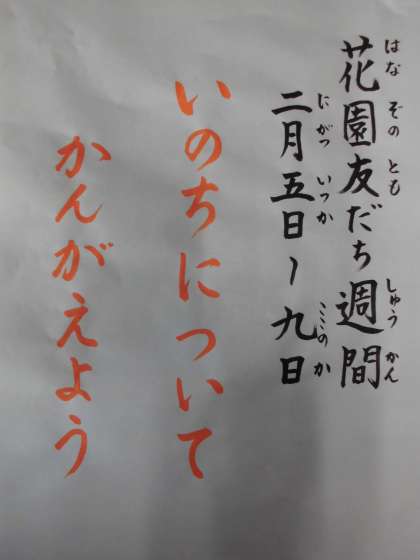 花園友だち週間
はなぞのとも しゅうかん
二月五日〜九日
にがついつか ここのか
いのちについて
かんがえよう